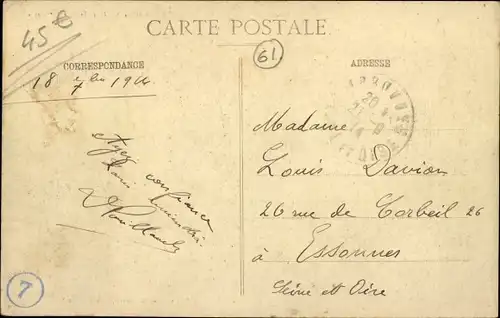 45€
CARTE POSTALE
61
CORRESPONDANCE
ADRESSE
18 7bre 1914
Ayez confiance
Louis viendra
Madame
Louis Davion
26 rue de Corbeil 26
à Essonnes
Seine et Oise
7